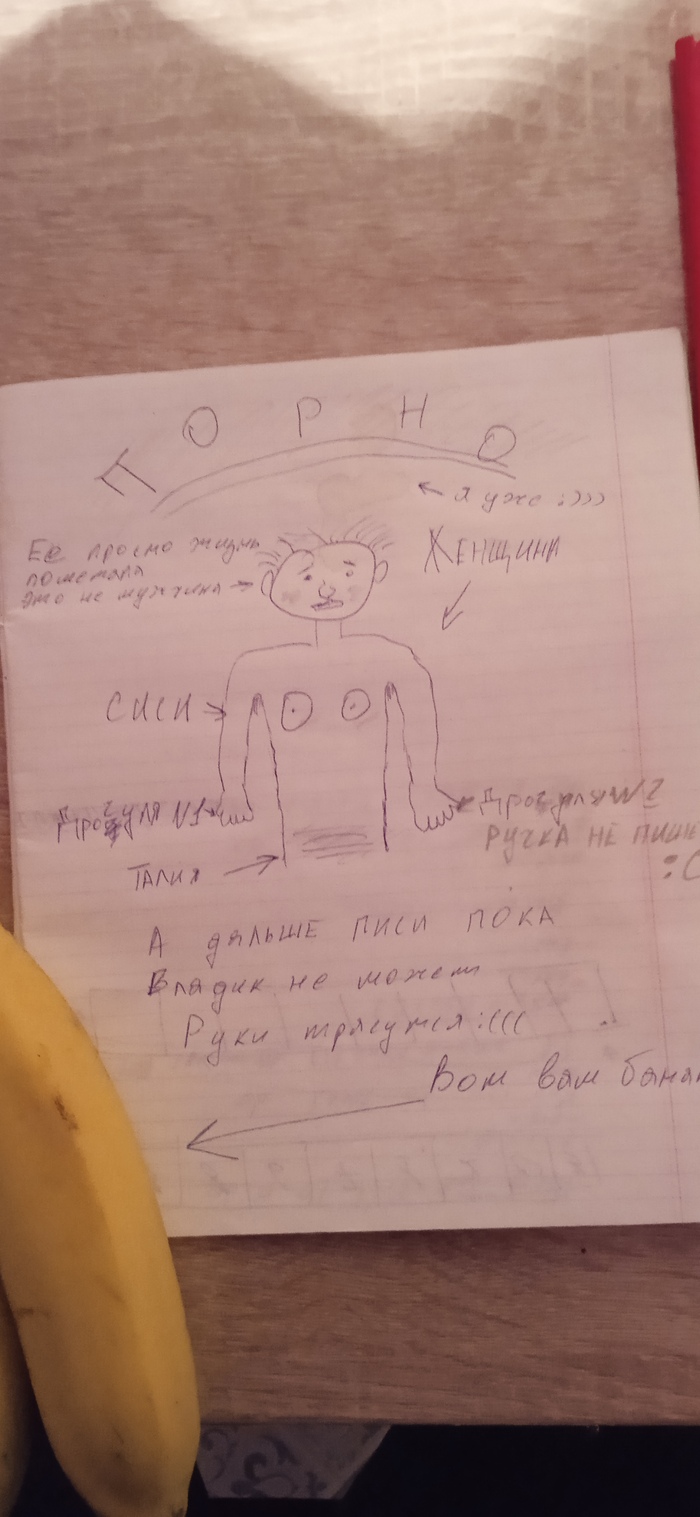 ПОРНО
← я уже :)))
Её просто жизнь
помотала
это не мужчина →
ЖЕНЩИНА
СИСИ →
Дрогуля №1
Дрогуля №2
РУЧКА НЕ ПИШЕ
:(
ТАЛИЯ →
А ДАЛЬШЕ ПИСИ ПОКА
Владик не может
Руки трясутся :(((
Вот вам банан